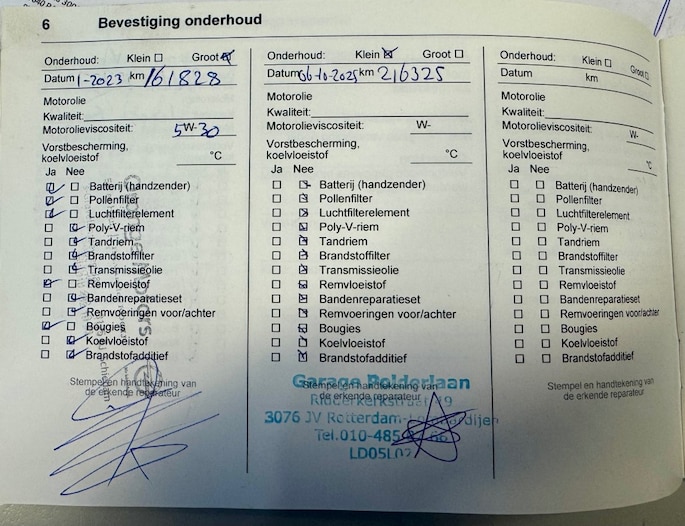 6 Bevestiging onderhoud
Onderhoud: Klein ☐ Groot ☒
Datum 1-2023 km 161828
Motorolie
Kwaliteit:
Motorolieviscositeit: 5W-30
Vorstbescherming,
koelvloeistof °C
Ja Nee
☑ ☐ Batterij (handzender)
☑ ☐ Pollenfilter
☑ ☐ Luchtfilterelement
☐ ☑ Poly-V-riem
☐ ☑ Tandriem
☐ ☑ Brandstoffilter
☐ ☑ Transmissieolie
☑ ☐ Remvloeistof
☐ ☑ Bandenreparatieset
☐ ☑ Remvoeringen voor/achter
☑ ☐ Bougies
☐ ☑ Koelvloeistof
☐ ☑ Brandstofadditief
Stempel en handtekening van
de erkende reparateur
Onderhoud: Klein ☒ Groot ☐
Datum 06-10-2025 km 216325
Motorolie
Kwaliteit:
Motorolieviscositeit: W-
Vorstbescherming,
koelvloeistof °C
Ja Nee
☐ ☑ Batterij (handzender)
☐ ☑ Pollenfilter
☐ ☑ Luchtfilterelement
☐ ☑ Poly-V-riem
☐ ☑ Tandriem
☐ ☑ Brandstoffilter
☐ ☑ Transmissieolie
☐ ☑ Remvloeistof
☐ ☑ Bandenreparatieset
☐ ☑ Remvoeringen voor/achter
☐ ☑ Bougies
☐ ☑ Koelvloeistof
☐ ☑ Brandstofadditief
Stempel en handtekening van
de erkende reparateur
Garage Bolderlaan
3076 JV Rotterdam
Tel.010-485
Onderhoud: Klein ☐ Groot ☐
Datum km
Motorolie
Kwaliteit:
Motorolieviscositeit: W-
Vorstbescherming,
koelvloeistof °C
Ja Nee
☐ ☐ Batterij (handzender)
☐ ☐ Pollenfilter
☐ ☐ Luchtfilterelement
☐ ☐ Poly-V-riem
☐ ☐ Tandriem
☐ ☐ Brandstoffilter
☐ ☐ Transmissieolie
☐ ☐ Remvloeistof
☐ ☐ Bandenreparatieset
☐ ☐ Remvoeringen voor/achter
☐ ☐ Bougies
☐ ☐ Koelvloeistof
☐ ☐ Brandstofadditief
Stempel en handtekening van
de erkende reparateur